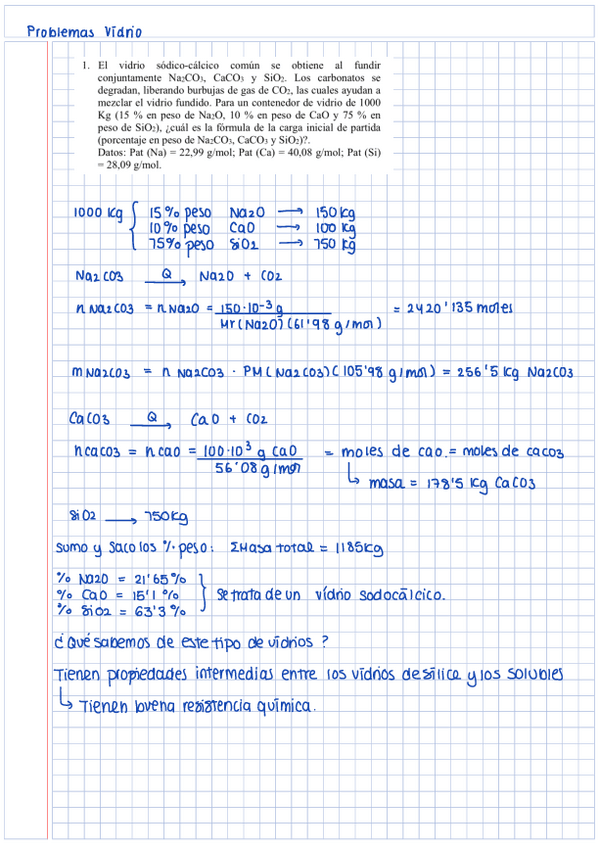 Problemas Vidrio
1. El vidrio sódico-cálcico común se obtiene al fundir
conjuntamente Na₂CO₃, CaCO₃ y SiO₂. Los carbonatos se
degradan, liberando burbujas de gas de CO₂, las cuales ayudan a
mezclar el vidrio fundido. Para un contenedor de vidrio de 1000
Kg (15 % en peso de Na₂O, 10 % en peso de CaO y 75 % en
peso de SiO₂), ¿cuál es la fórmula de la carga inicial de partida
(porcentaje en peso de Na₂CO₃, CaCO₃ y SiO₂)?.
Datos: Pat (Na) = 22,99 g/mol; Pat (Ca) = 40,08 g/mol; Pat (Si)
= 28,09 g/mol.
1000 Kg { 15% peso Na2O → 150 Kg
10% peso CaO → 100 Kg
75% peso SiO2 → 750 Kg
Na2CO3 Q → Na2O + CO2
n Na2CO3 = n Na2O = 150·10-3 g / Mr (Na2O) (61'98 g/mol) = 2420'135 moles
m Na2CO3 = n Na2CO3 · PM (Na2CO3) (105'98 g/mol) = 256'5 Kg Na2CO3
CaCO3 Q → CaO + CO2
n CaCO3 = n CaO = 100·10³ g CaO / 56'08 g/mol = moles de CaO. = moles de CaCO3
↳ masa = 178'5 Kg CaCO3
SiO2 → 750 Kg
Sumo y saco los % peso: ΣMasa total = 1185 Kg
% Na2O = 21'65%
% CaO = 15'1 % } Se trata de un vídrio sodocálcico.
% SiO2 = 63'3 %
¿Qué sabemos de este tipo de vidrios?
Tienen propiedades intermedias entre los vidrios de sílice y los solubles
↳ Tienen buena resistencia química.